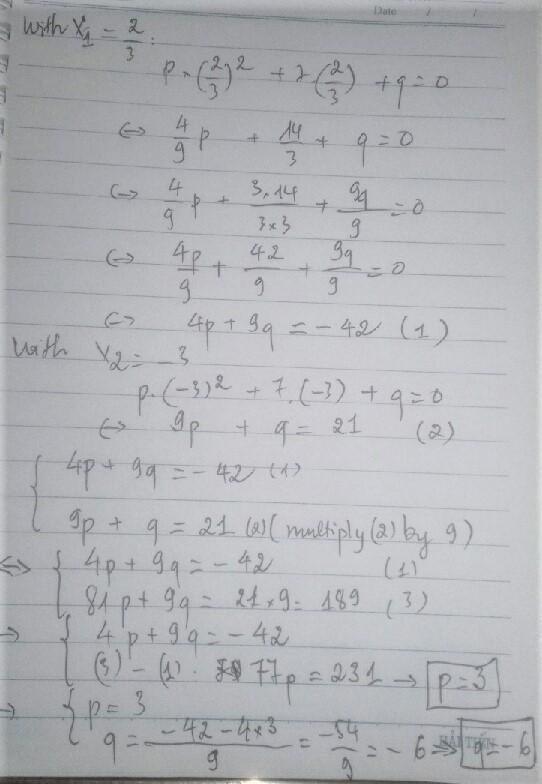 Date / /
With X₁ = 2/3 :
p · (2/3)² + 7 (2/3) + q = 0
⇔ 4/9 p + 14/3 + q = 0
⇔ 4/9 p + 3.14/3×3 + 9q/9 = 0
⇔ 4p/9 + 42/9 + 9q/9 = 0
⇔ 4p + 9q = - 42 (1)
With X₂ = -3
p · (-3)² + 7 . (-3) + q = 0
⇔ 9p + q = 21 (2)
{ 4p + 9q = - 42 (1)
9p + q = 21 (2) ( multiply (2) by 9)
⇔ { 4p + 9q = - 42 (1)
81p + 9q = 21×9 = 189 (3)
→ { 4p + 9q = - 42
(3) - (1) : 77p = 231 → p = 3
→ { p = 3
q = -42 - 4×3/9 = -54/9 = - 6 ⇒ q = -6